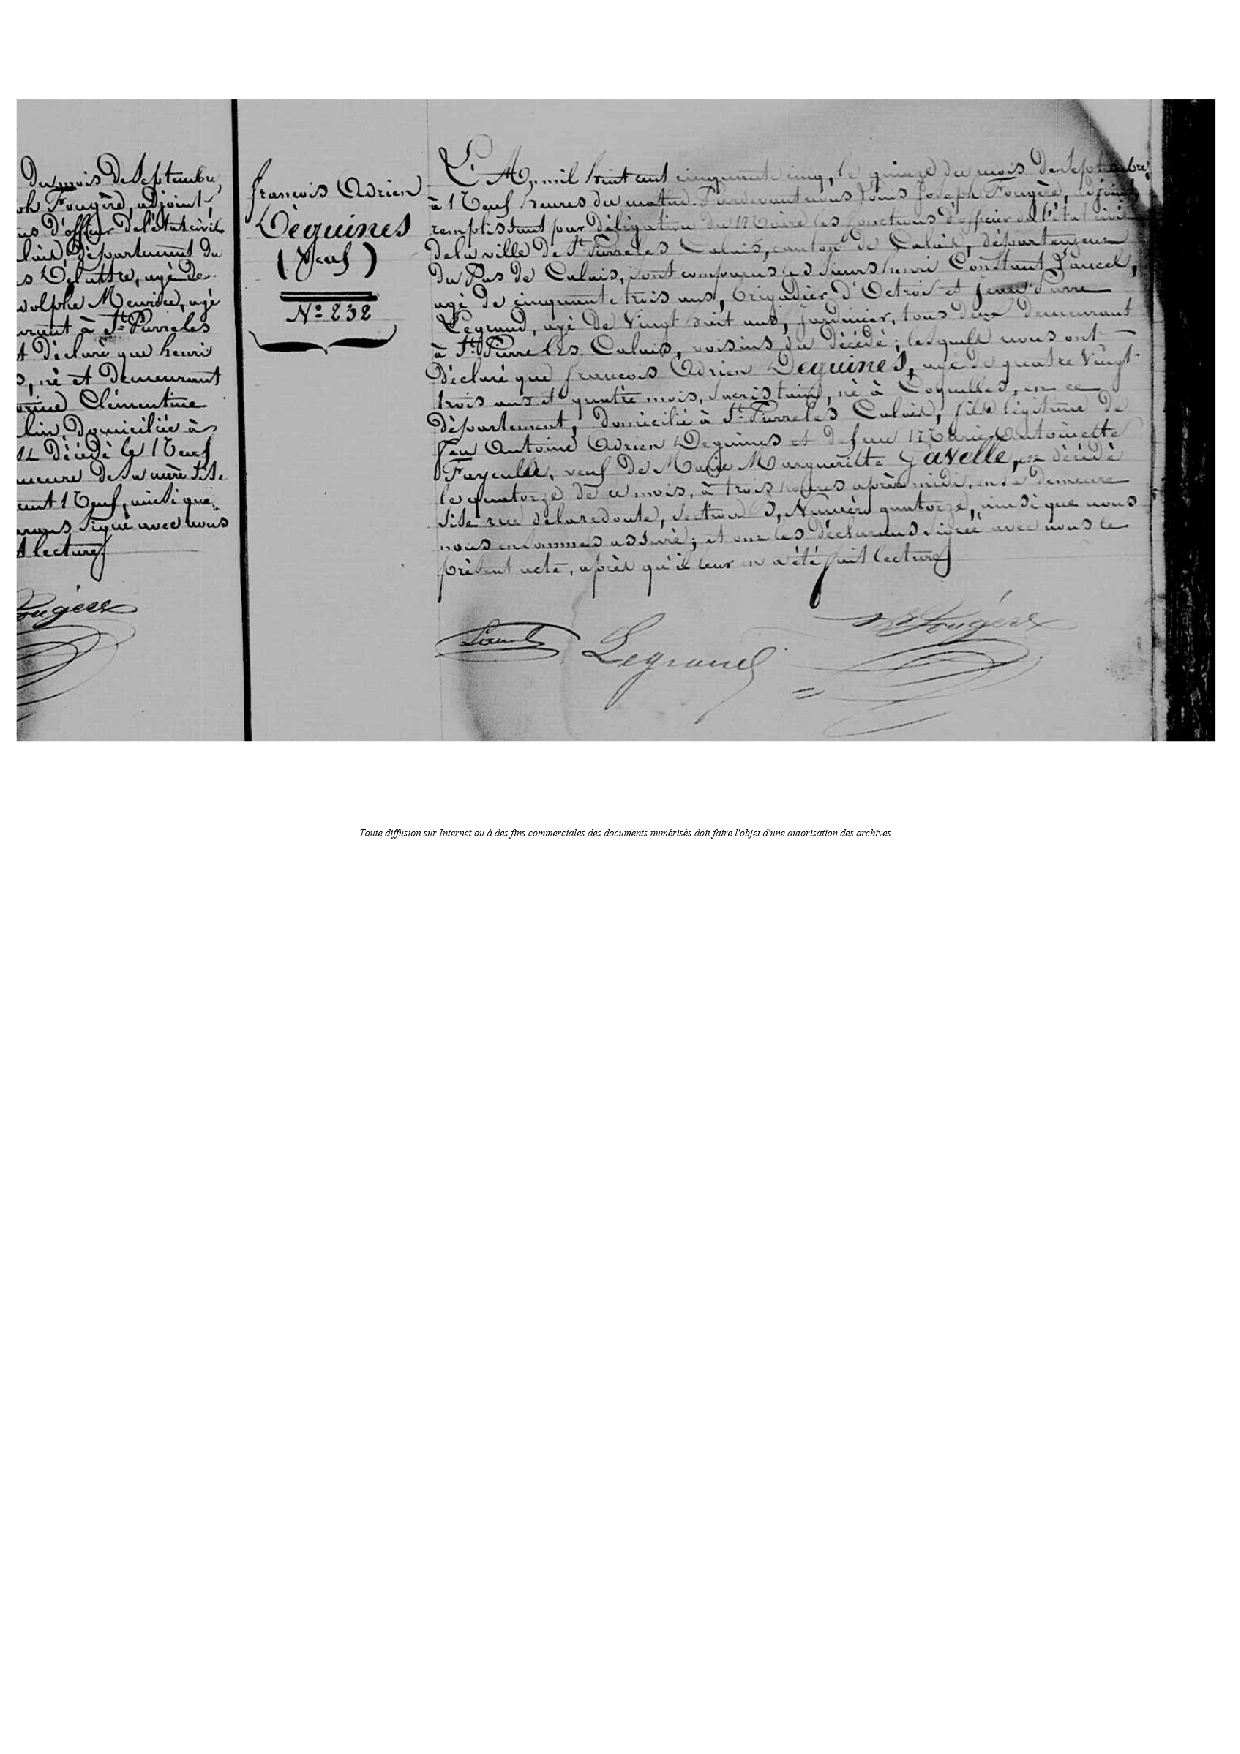 Du mois de Septembre,
Fougère, adjoint
d'officier de l'état civil
département du
Delattre, agé de
Meurdre, agé
à St. Pierre les
Déclaré que henri
né et Demeurant
Clémentine
Domiciliée à
Décédé le Neuf
Demeure de sa mère
Neuf, ainsi que
signé avec nous
lecture
Fougère
françois Adrien
Dèquines
(Veuf)
N° 232
L'An mil huit cent cinquante cinq, le quinze du mois de Septembre,
à Neuf heures du matin Pardevant nous Louis Joseph Fougère, adjoint
remplissant par délégation du Maire les fonctions d'officier de l'état civil
de la ville de St. Pierre les Calais, canton de Calais, département
du Pas de Calais, sont comparus les sieurs henri Constant Lancel,
agé de cinquante trois ans, Brigadier d'Octroi et Pierre
Legrand, agé de Vingt huit ans, Jardinier, tous deux Demeurant
à St. Pierre les Calais, voisins du Décédé ; lesquels nous ont
Déclaré que françois Adrien Dequines, agé de quatre Vingt
trois ans et quatre mois, Sacristain, né à Coquelles, en ce
département, Domicilié à St. Pierre les Calais, fils légitime de
feu Antoine Adrien Dequines et de feue Marie Antoinette
veuf De Marie Marguerite Gavelle, est décédé
le quatorze de ce mois, à trois heures après midi, en sa Demeure
sise rue de la redoute, Section Numéro quatorze, ainsi que nous
nous en sommes assuré ; et ont les déclarans signé avec nous le
présent acte, après qu'il leur en a été fait lecture
Lancel Legrand Fougère
Toute diffusion sur Internet ou à des fins commerciales des documents numérisés doit faire l'objet d'une autorisation des archives